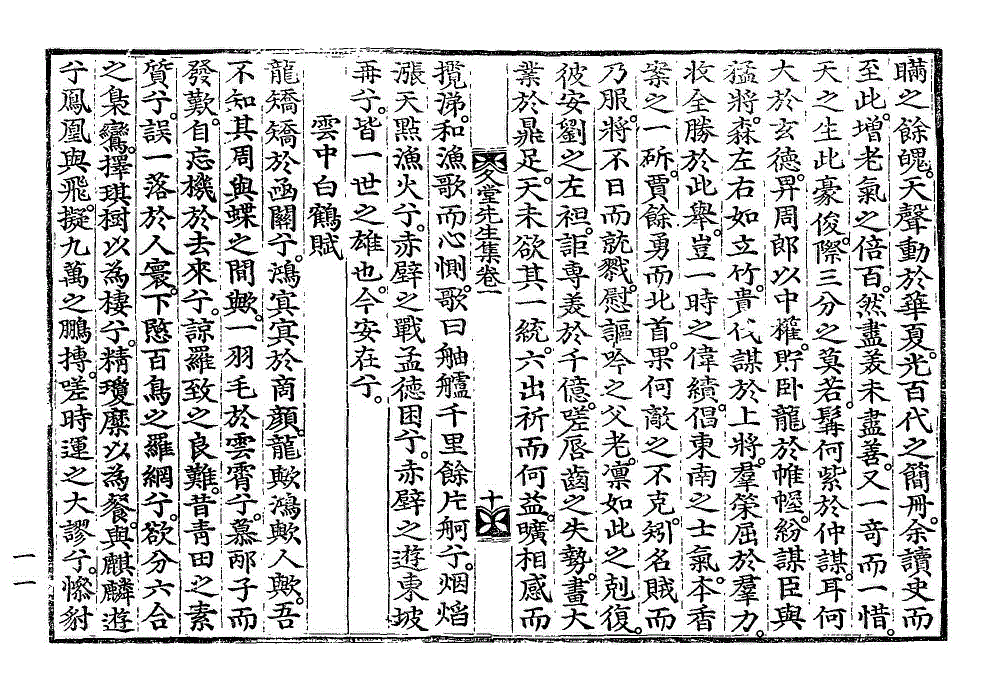 瞞之餘魄天聲動於華夏光百代之簡冊余讀史而
至此增老氣之倍百然盡美未盡善又一奇而一惜
天之生此豪俊際三分之莫若髯何紫於仲謀耳何
大於玄德昇周郎以中權貯卧龍於帷幄紛謀臣與
猛將森左右如立竹貴代謀於上將羣策屈於羣力
收全勝於此舉豈一時之偉績倡東南之士氣本香
案之一斫賈餘勇而北首果何敵之不克矧名賦而
乃服將不日而就戮慰謳吟之父老凛如此之剋復
彼安劉之左袒詎專美於千億嗟唇齒之失勢畫大
業於鼎足天未欲其一統六出祈而何益曠相感而
久堂先生集卷一 十
攬涕和漁歌而心惻歌曰舳艫千里餘片舸兮烟焰
漲天點漁火兮赤壁之戰孟德困兮赤壁之遊東坡
再兮皆一世之雄也今安在兮
雲中白鶴賦
龍矯矯於函關兮鴻冥冥於商顏龍歟鴻歟人歟吾
不知其周與蝶之間歟一羽毛於雲霄兮慕邴子而
發歎自忘機於去來兮諒羅致之良難昔青田之素
質兮誤一落於人寰下愍百鳥之羅網兮欲分六合
之梟鸞擇琪樹以為棲兮精瓊糜以為餐與麒麟遊
兮鳳凰與飛擬九萬之鵬摶嗟時運之大謬兮慘豺
一一